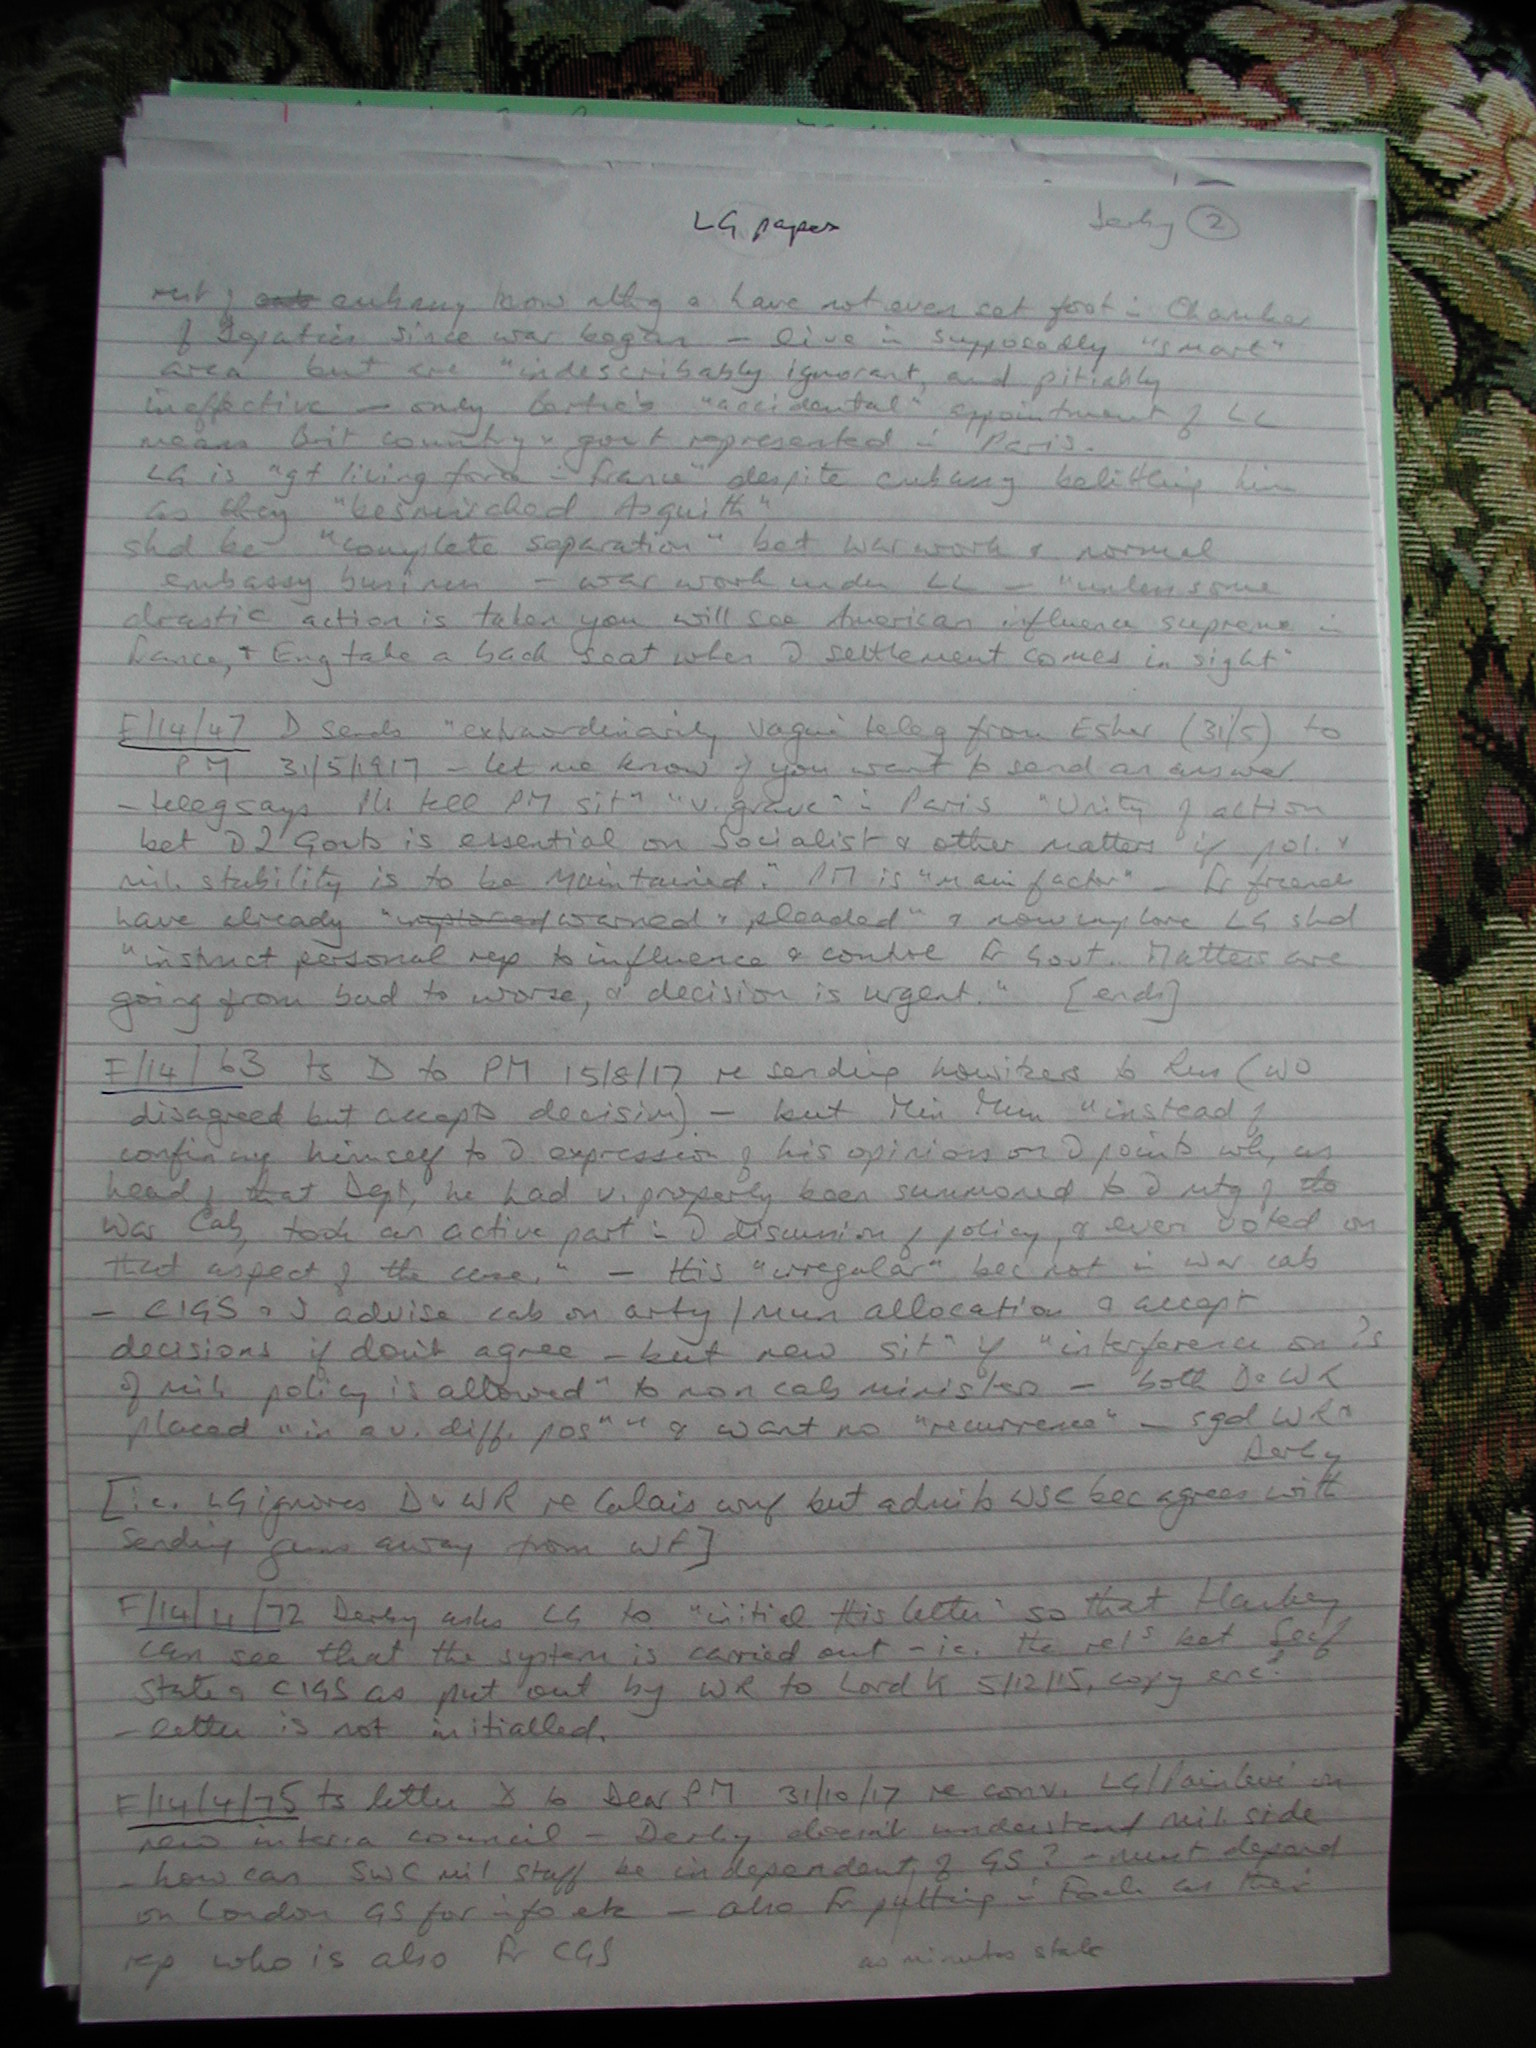 LG papers
Derby 2
rest of embassy know nthg & have not even set foot in Chamber
of Deputies since war began - live in supposedly "smart"
area but are "indescribably ignorant, and pitiably
ineffective - only Bertie's "accidental" appointment of LL
means Brit country & govt represented in Paris.
LG is "gt living force in France" despite embassy belittling him
as they "besmirched Asquith"
shd be "complete separation" bet war work & normal
embassy business - war work under LL - "unless some
drastic action is taken you will see American influence supreme in
France, & Eng take a back seat when D settlement comes in sight"
F/14/47 D sends "extraordinarily vague teleg from Esher (31/5) to
PM 31/5/1917 - let me know if you want to send an answer
- teleg says Pls tell PM sitn "v. grave" in Paris "Unity of action
bet D 2 Govts is essential on Socialist & other matters if pol. &
mil. stability is to be maintained." PM is "main factor" - Fr friends
have already "implored warned & pleaded" & now implore LG shd
"instruct personal rep to influence & control Fr Govt. Matters are
going from bad to worse, & decision is urgent." [ends]
F/14/63 ts D to PM 15/8/17 re sending howitzers to Rus (WO
disagreed but accepts decision) - but Min Mun "instead of
confining himself to D expression of his opinions on D points wh, as
head of that Dept, he had v. properly been summoned to D mtg of the
War Cab, took an active part in D discussion of policy, & even voted on
that aspect of the case." - this "irregular" bec not in war cab
- CIGS & S advise cab on arty/mun allocation & accept
decisions if don't agree - but new sitn if "interference on ?s
of mil. policy is allowed" to non cab ministers - both D & WR
placed "in a v. diff. posn" & want no "recurrence" - sgd WR &
Derby
[i.e. LG ignores D & WR re Calais conf but admits WSC bec agrees with
sending guns away from WF]
F/14/4/72 Derby asks LG to "initial this letter" so that Hankey
can see that the system is carried out - ie. the rels bet Sec of
State & CIGS as put out by WR to Lord K 5/12/15, copy encd
- letter is not initialled.
F/14/4/75 ts letter D to Dear PM 31/10/17 re conv. LG/Painlevé on
new interall council - Derby doesn't understand mil. side
- how can SWC mil staff be independent of GS? - must depend
on London GS for info etc - also Fr putting in Foch as their
rep who is also Fr CGS
as minutes state